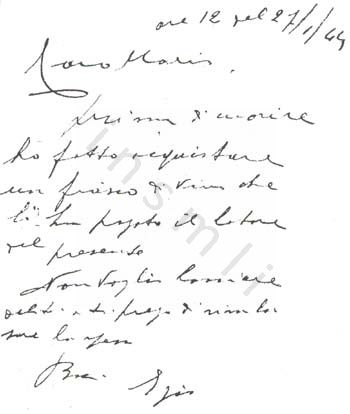 ore 12 del 27/1/44
Caro Mario,
prima di morire
ho fatto acquistare
un fiasco di vino che
lì ha pagato il latore
del presente
Non voglio lasciare
debiti e ti prego di rimbor
sare la spesa
Baci Egio
insmli